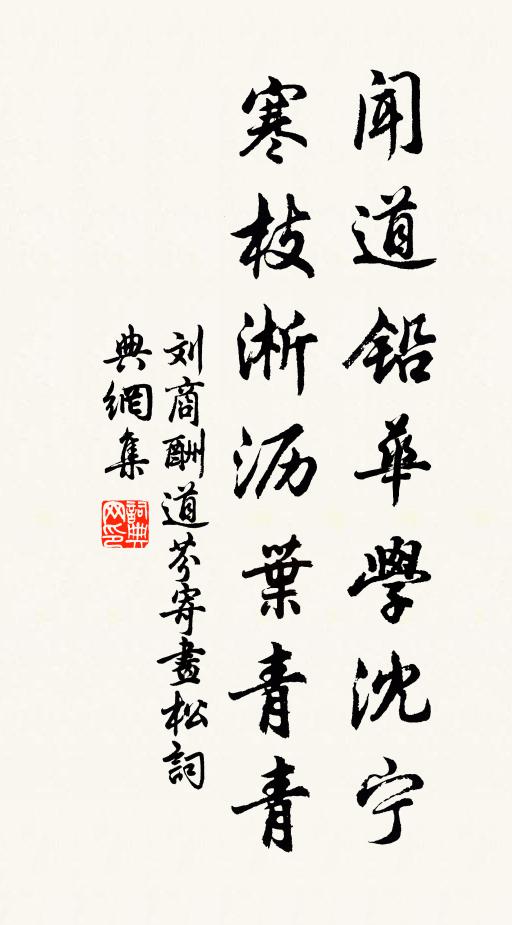 闻道铅华學沈宁
寒枝淅沥葉青青
刘商酬道芬寄畫松詞
典網集
詞典网印